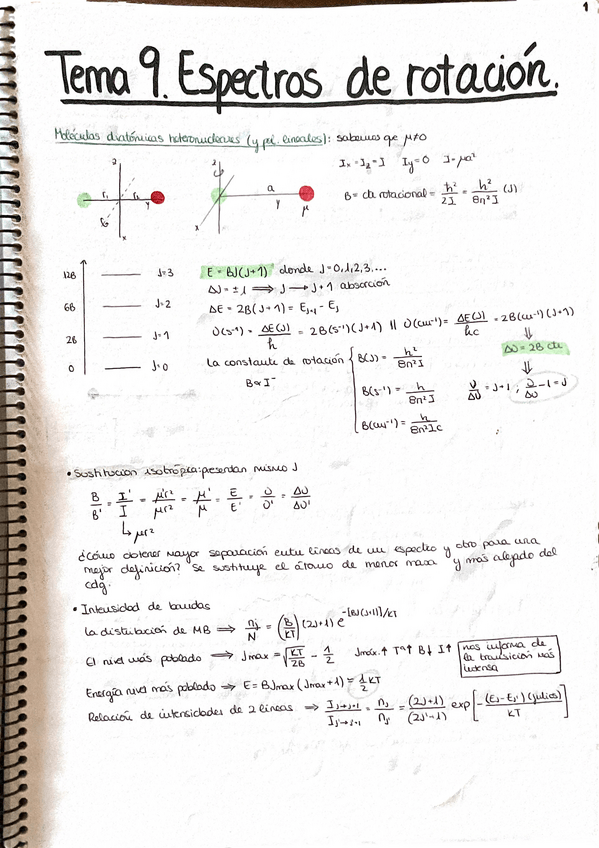 1
Tema 9. Espectros de rotación.
Moléculas diatómicas heteronucleares (y pol. lineales): sabemos que μ≠0
z r₁ r₂ y r₀ x
z a y μ x
Ix = Iz = I Iy = 0 I = μa²
B = cte rotacional = ħ²/2I = h²/8π²I (J)
12B J=3
6B J=2
2B J=1
0 J=0
E = BJ(J+1) donde J=0,1,2,3,...
ΔJ = ±1 ⟹ J → J+1 absorción
ΔE = 2B(J+1) = EJ+1 - EJ
ν(s⁻¹) = ΔE(J)/h = 2B(s⁻¹)(J+1) || ν(cm⁻¹) = ΔE(J)/hc = 2B(cm⁻¹)(J+1)
⇓
Δν = 2B cte
⇓
ν/Δν = J+1 ; ν/Δν -1 = J
La constante de rotación
B α I⁻
B(J) = h²/8π²I
B(s⁻¹) = h/8π²I
B(cm⁻¹) = h/8π²Ic
• Sustitución isotrópica: presentan mismo J
B/B' = I'/I = μ'r²/μr² = μ'/μ = E/E' = ν/ν' = Δν/Δν'
↳ μr²
¿Cómo obtener mayor separación entre líneas de un espectro y otro para una
mejor definición? Se sustituye el átomo de menor masa y más alejado del
cdg.
• Intensidad de bandas
La distribución de MB ⟹ nj/N = (B/KT) (2J+1) e^-[BJ(J+1)]/KT
El nivel más poblado ⟹ Jmax = √(KT/2B) - 1/2 Jmáx.↑ Tª↑ B↓ I↑ nos informa de
la transición más
intensa
Energía nivel más poblado → E = BJmax(Jmax+1) = 1/2 KT
Relación de intensidades de 2 líneas ⟹ IJ→J+1/IJ'→J'+1 = nJ/nJ' = (2J+1)/(2J'+1) exp[-(EJ-EJ')(julios)/KT]